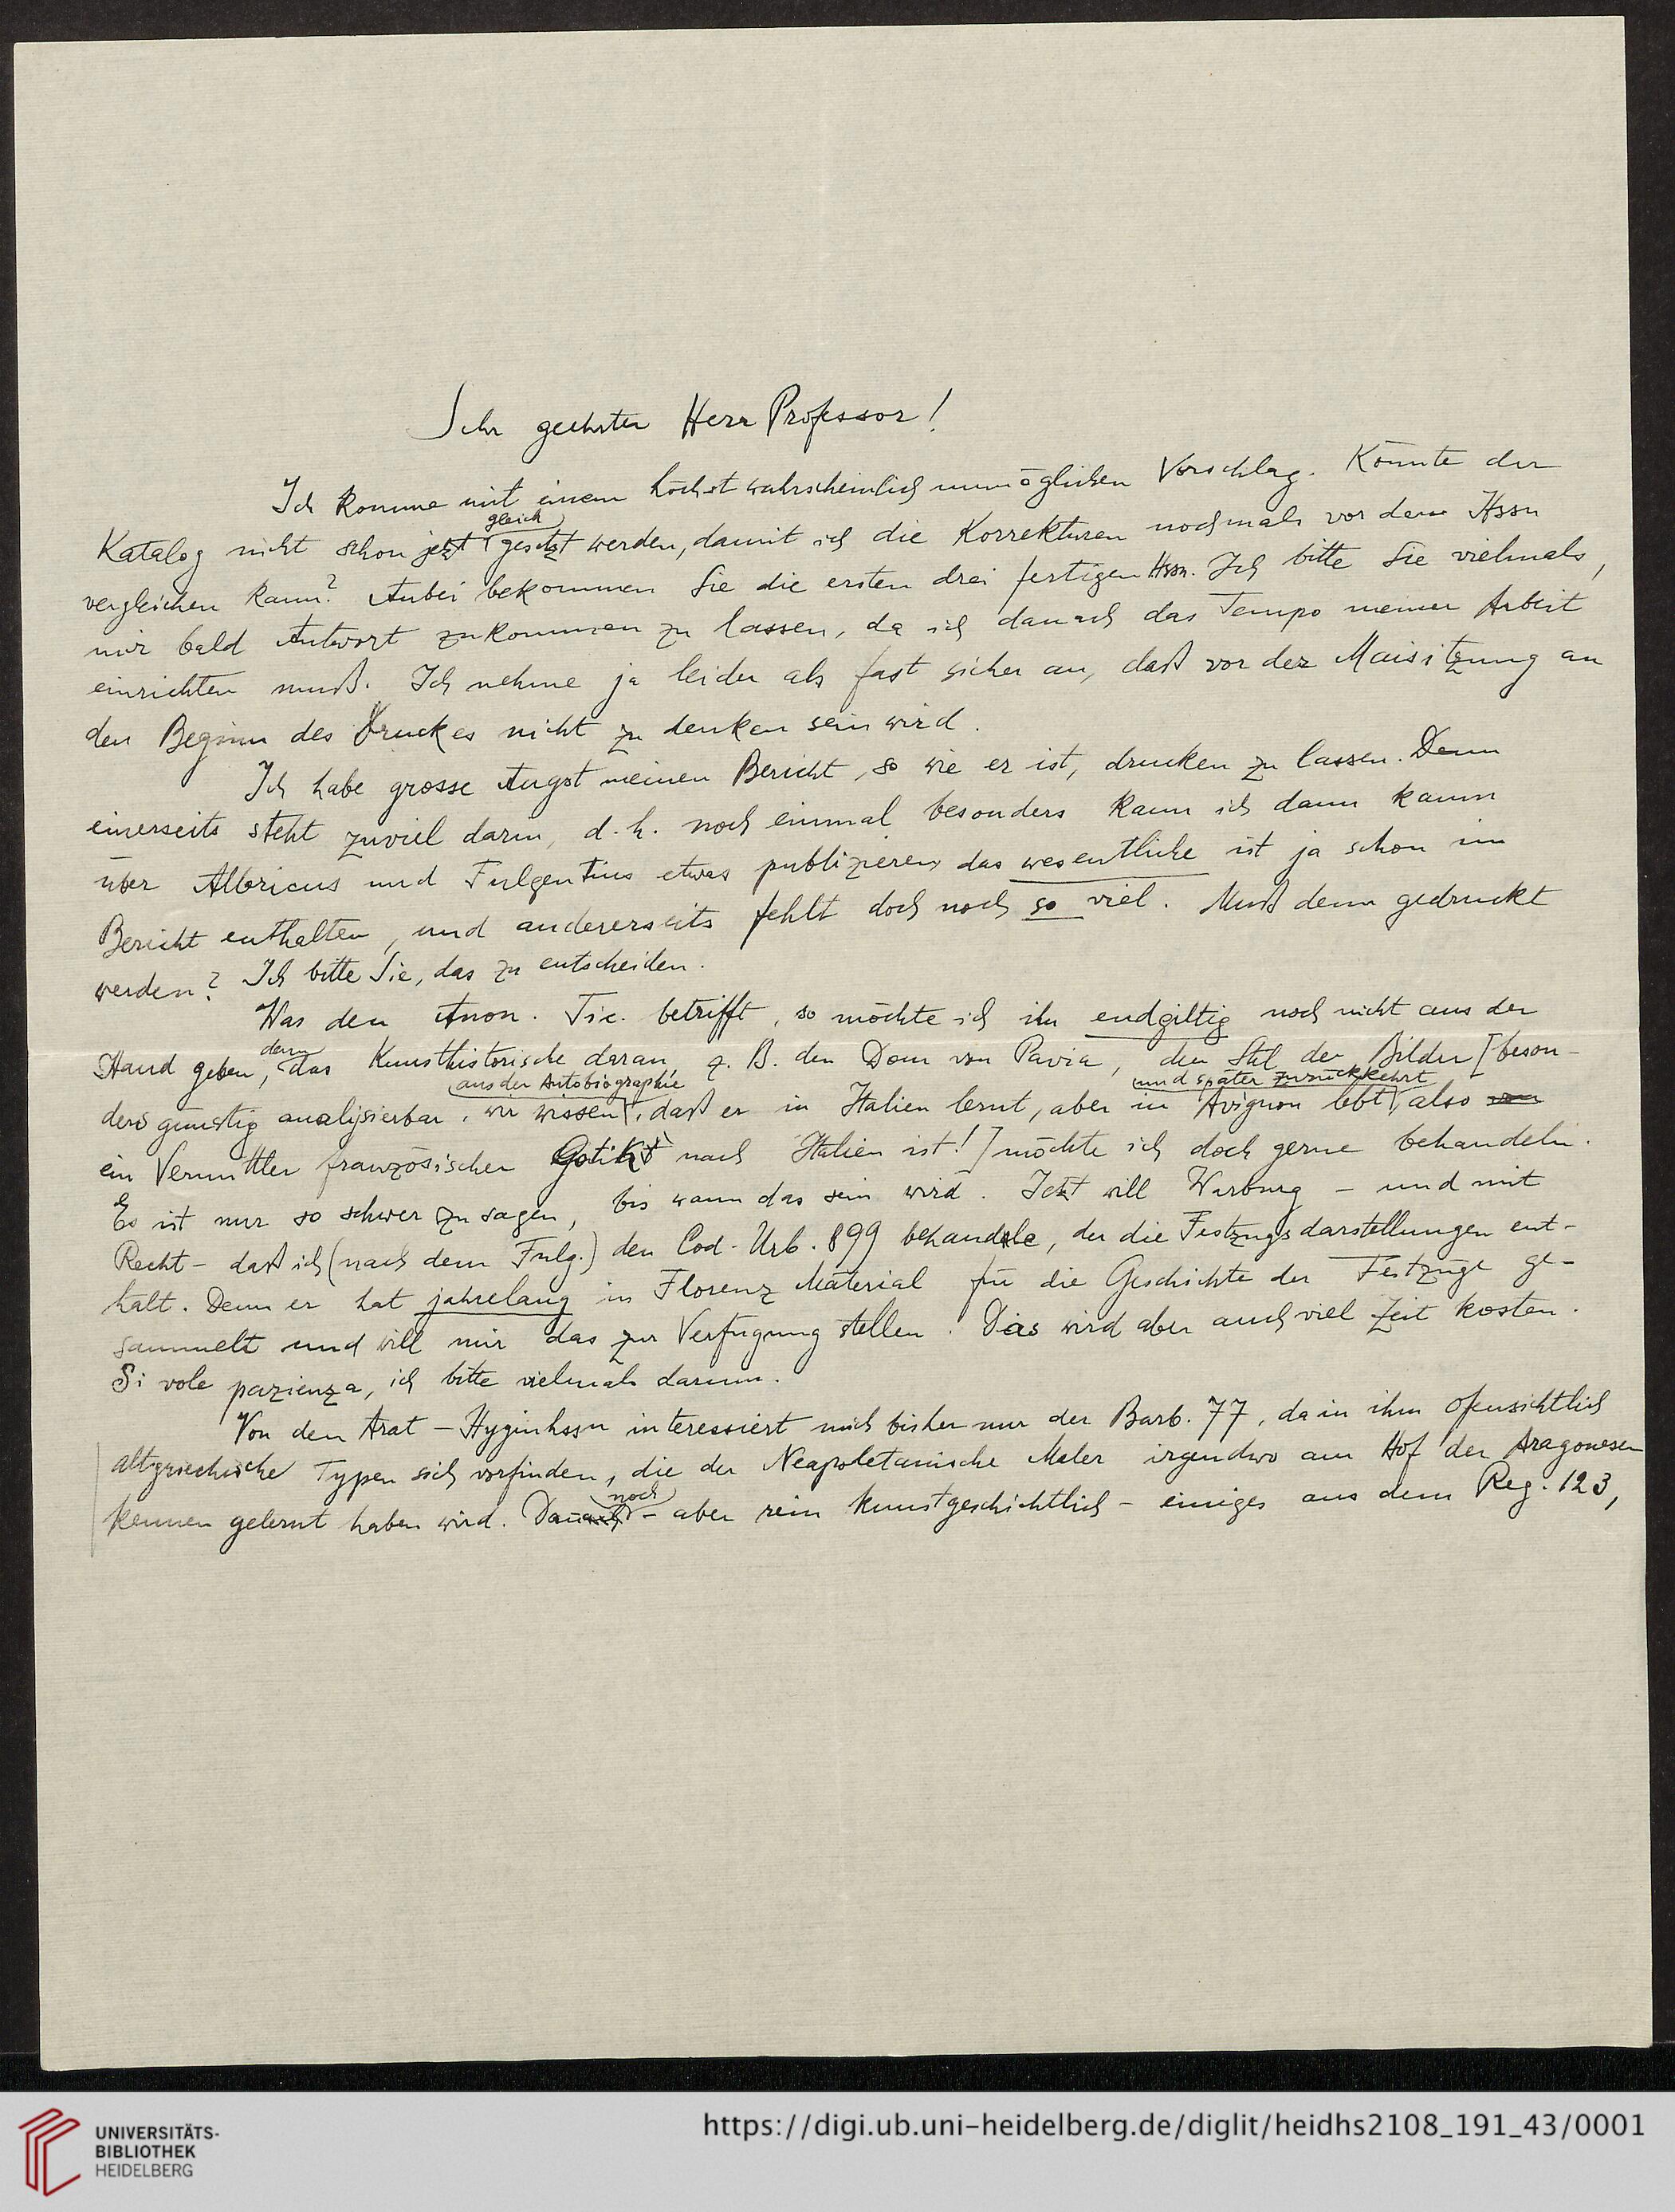 Sehr geehrter Herr Professor!
Ich komme mit einem höchst wahrscheinlich unmöglichen Vorschlag. Könnte der
gleich
Katalog nicht schon jetzt gesetzt werden, damit ich die Korrekturen nochmals vor den Hssn
vergleichen kann? Anbei bekommen Sie die ersten drei fertigen Hssn. Ich bitte Sie vielmals,
mir bald Antwort zukommen zu lassen, da ich danach das Tempo meiner Arbeit
einrichten muß. Ich nehme ja leider als fast sicher an, daß vor der Maisitzung an
den Beginn des Druckes nicht zu denken sein wird.
Ich habe grosse Angst meinen Bericht, so wie er ist, drucken zu lassen. Denn
einerseits steht zuviel darin, d. h. noch einmal besonders kann ich dann kaum
über Albricus und Fulgentius etwas publizieren, das wesentliche ist ja schon im
Bericht enthalten, und andererseits fehlt doch noch so viel. Muß denn gedruckt
werden? Ich bitte Sie, das zu entscheiden.
Was den Anon. Tic. betrifft, so möchte ich ihn endgiltig noch nicht aus der
denn
Hand geben, das Kunsthistorische daran, z. B. den Dom von Pavia, den Stil der Bilder [beson-
aus der Autobiographie
und später zurückkehrt
ders günstig analysierbar, wir wissen, daß er in Italien lernt, aber in Avignon lebt, also von
ein Vermittler französischer Gotik nach Italien ist!] möchte ich doch gerne behandeln.
Es ist nur so schwer zu sagen, bis wann das sein wird. Jetzt will Warburg – und mit
Recht – daß ich (nach dem Fulg.) den Cod. Urb. 899 behandele, der die Festzugsdarstellungen ent-
hält. Denn er hat jahrelang in Florenz Material für die Geschichte der Festzüge ge-
sammelt und will mir das zur Verfügung stellen. Das wird aber auch viel Zeit kosten.
Si vole pazienza, ich bitte vielmals darum.
Von den Arat – Hyginhssn interessiert mich bisher nur der Barb. 77, da in ihm ofensichtlich
altgriechische Typen sich vorfinden, die der Neapoletanische Maler irgendwo am Hof der Aragonesen
noch
kennen gelernt haben wird. Danach – aber rein kunstgeschichtlich – einiges aus dem Reg. 123,
UNIVERSITÄTS-
BIBLIOTHEK
HEIDELBERG
https://digi.ub.uni-heidelberg.de/diglit/heidhs2108_191_43/0001